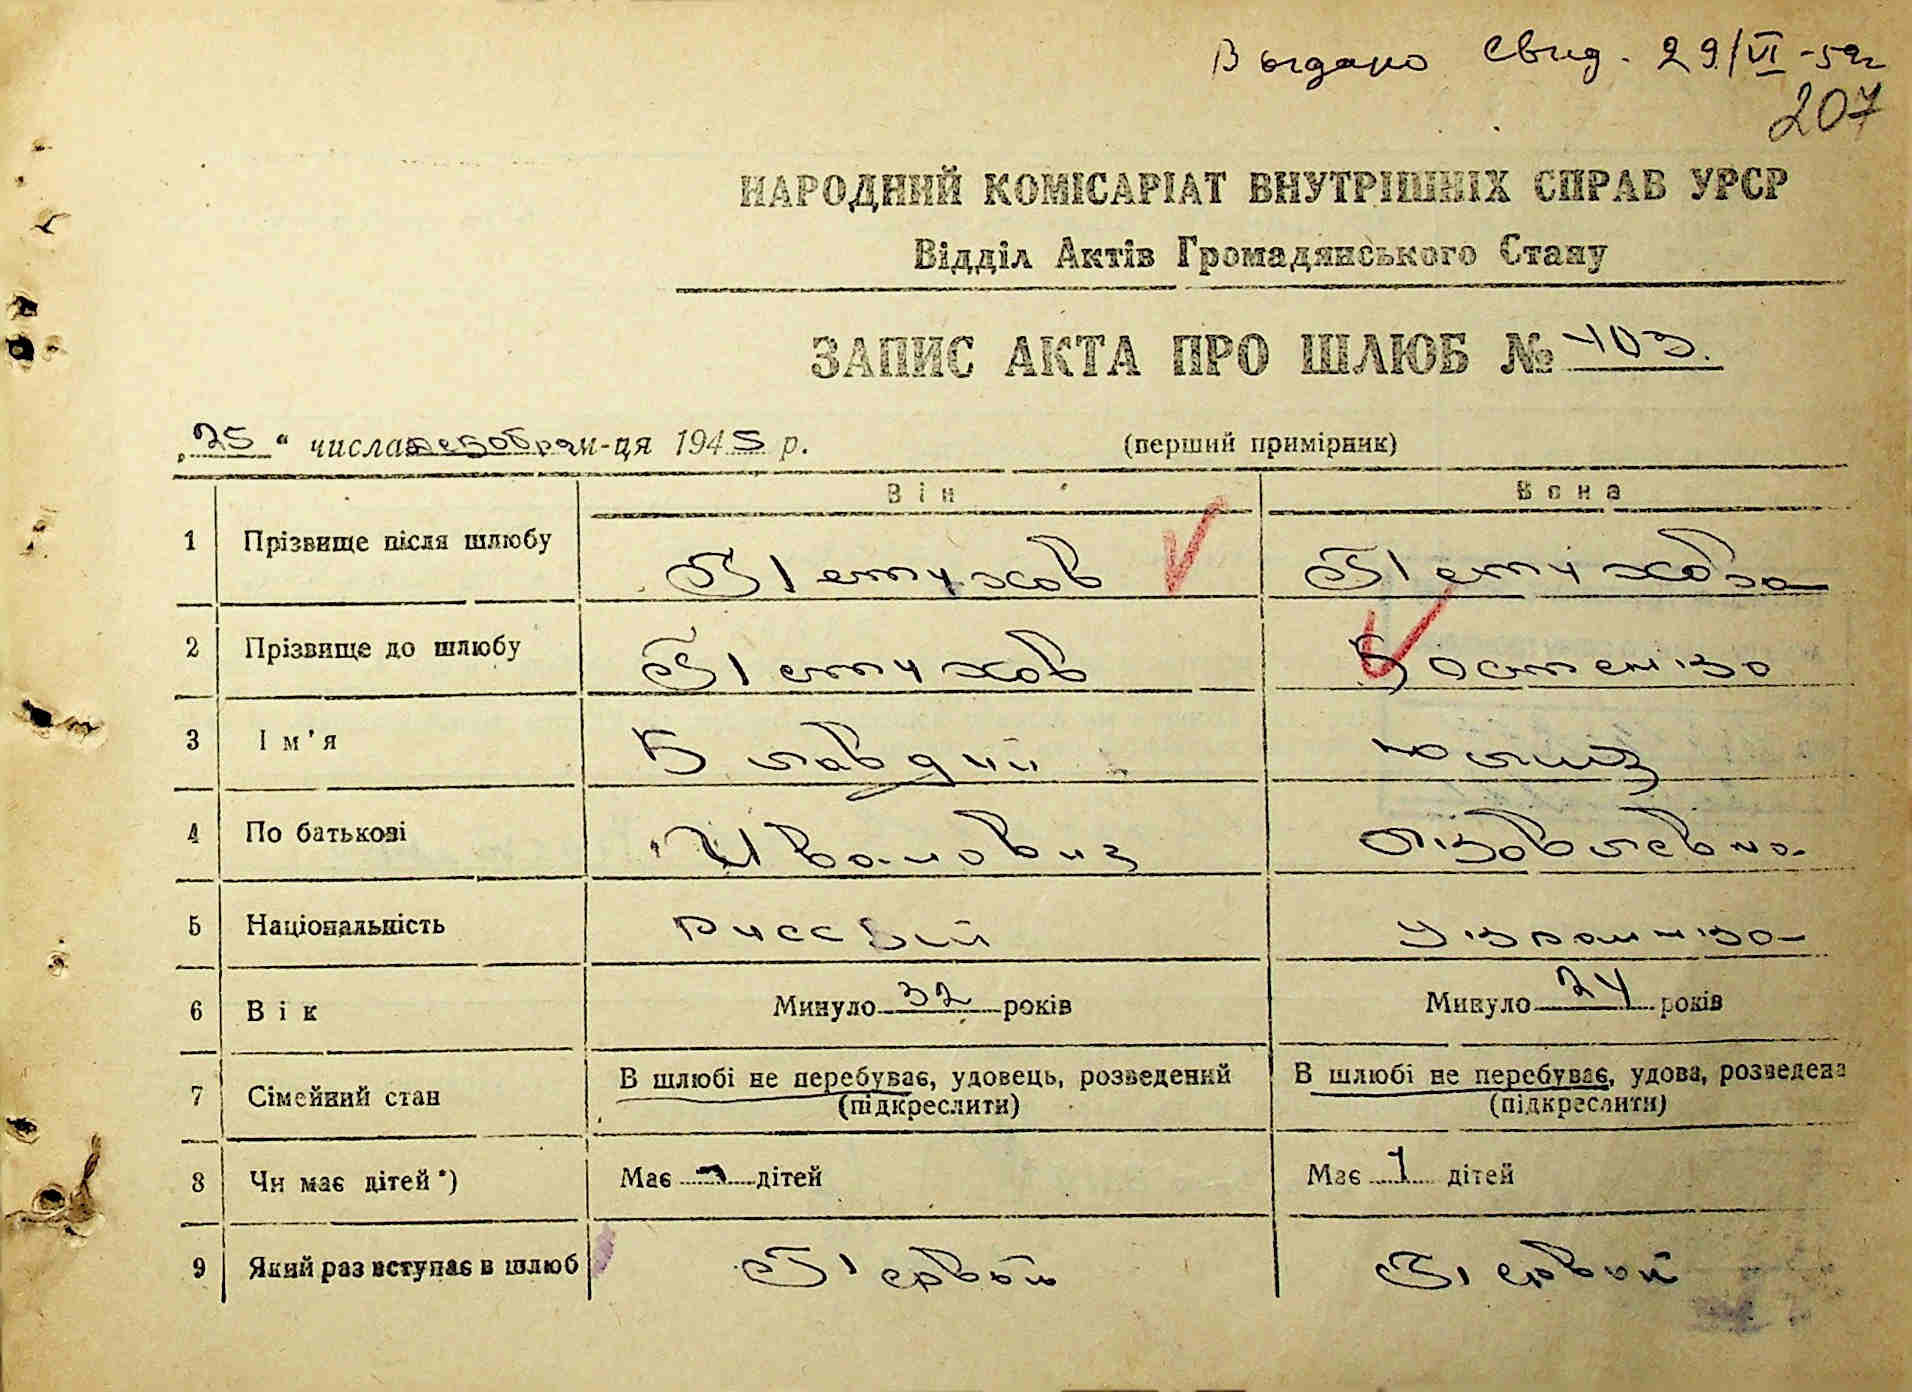 Выдано свид. 29/VI-52г
207
НАРОДНИЙ КОМІСАРІАТ ВНУТРІШНІХ СПРАВ УРСР
Відділ Актів Громадянського Стану
ЗАПИС АКТА ПРО ШЛЮБ № 403.
„25“ числа декабря м-ця 1945 р. (перший примірник)
Він Вона
1 Прізвище після шлюбу Петухов Петухова
2 Прізвище до шлюбу Петухов
3 Ім'я Клавдий Юлия
4 По батькові Иванович Яковлевна
5 Національність русский Украинка
6 Вік Минуло 32 років Минуло 24 років
7 Сімейний стан В шлюбі не перебуває, удовець, розведений В шлюбі не перебуває, удова, розведена
(підкреслити) (підкреслити)
8 Чи має дітей *) Має дітей Має 1 дітей
9 Який раз вступає в шлюб Первый Первый